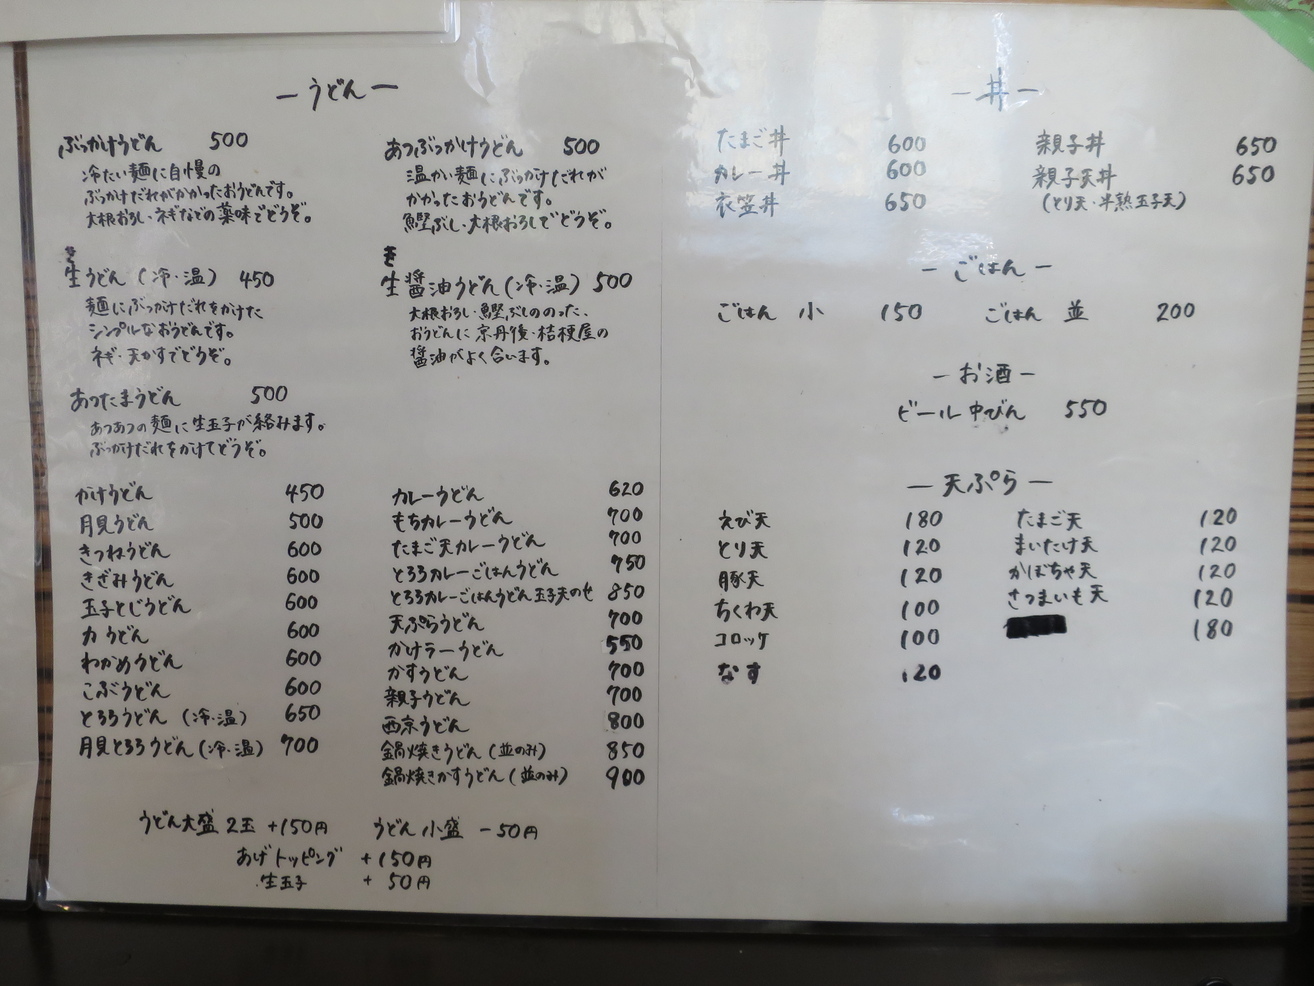 ーうどんー
ぶっかけうどん 500
冷たい麺に自慢の
ぶっかけだれがかかったおうどんです。
大根おろし・ネギなどの薬味でどうぞ。
あつぶっかけうどん 500
温かい麺にぶっかけだれが
かかったおうどんです。
鰹ぶし・大根おろしでどうぞ。
き
生うどん (冷・温) 450
麺にぶっかけだれをかけた
シンプルなおうどんです。
ネギ・天かすでどうぞ。
き
生醤油うどん(冷・温) 500
大根おろし・鰹ぶしののった、
おうどんに京丹後・桔梗屋の
醤油がよく合います。
あつたまうどん 500
あつあつの麺に生玉子が絡みます。
ぶっかけだれをかけてどうぞ。
かけうどん 450
月見うどん 500
きつねうどん 600
きざみうどん 600
玉子とじうどん 600
力うどん 600
わかめうどん 600
こぶうどん 600
とろろうどん (冷・温) 650
月見とろろうどん(冷・温) 700
カレーうどん 620
もちカレーうどん 700
たまご天カレーうどん 700
とろろカレーごはんうどん 750
とろろカレーごはんうどん玉子天のせ 850
天ぷらうどん 700
かけラーうどん 550
かすうどん 700
親子うどん 700
西京うどん 800
鍋焼きうどん(並のみ) 850
鍋焼きかすうどん(並のみ) 900
うどん大盛 2玉 +150円 うどん小盛 -50円
あげトッピング +150円
生玉子 + 50円
ー丼ー
たまご丼 600
カレー丼 600
衣笠丼 650
親子丼 650
親子天丼 650
(とり天・半熟玉子天)
ーごはんー
ごはん 小 150 ごはん 並 200
ーお酒ー
ビール中びん 550
ー天ぷらー
えび天 180
とり天 120
豚天 120
ちくわ天 100
コロッケ 100
なす 120
たまご天 120
まいたけ天 120
かぼちゃ天 120
さつまいも天 120
180